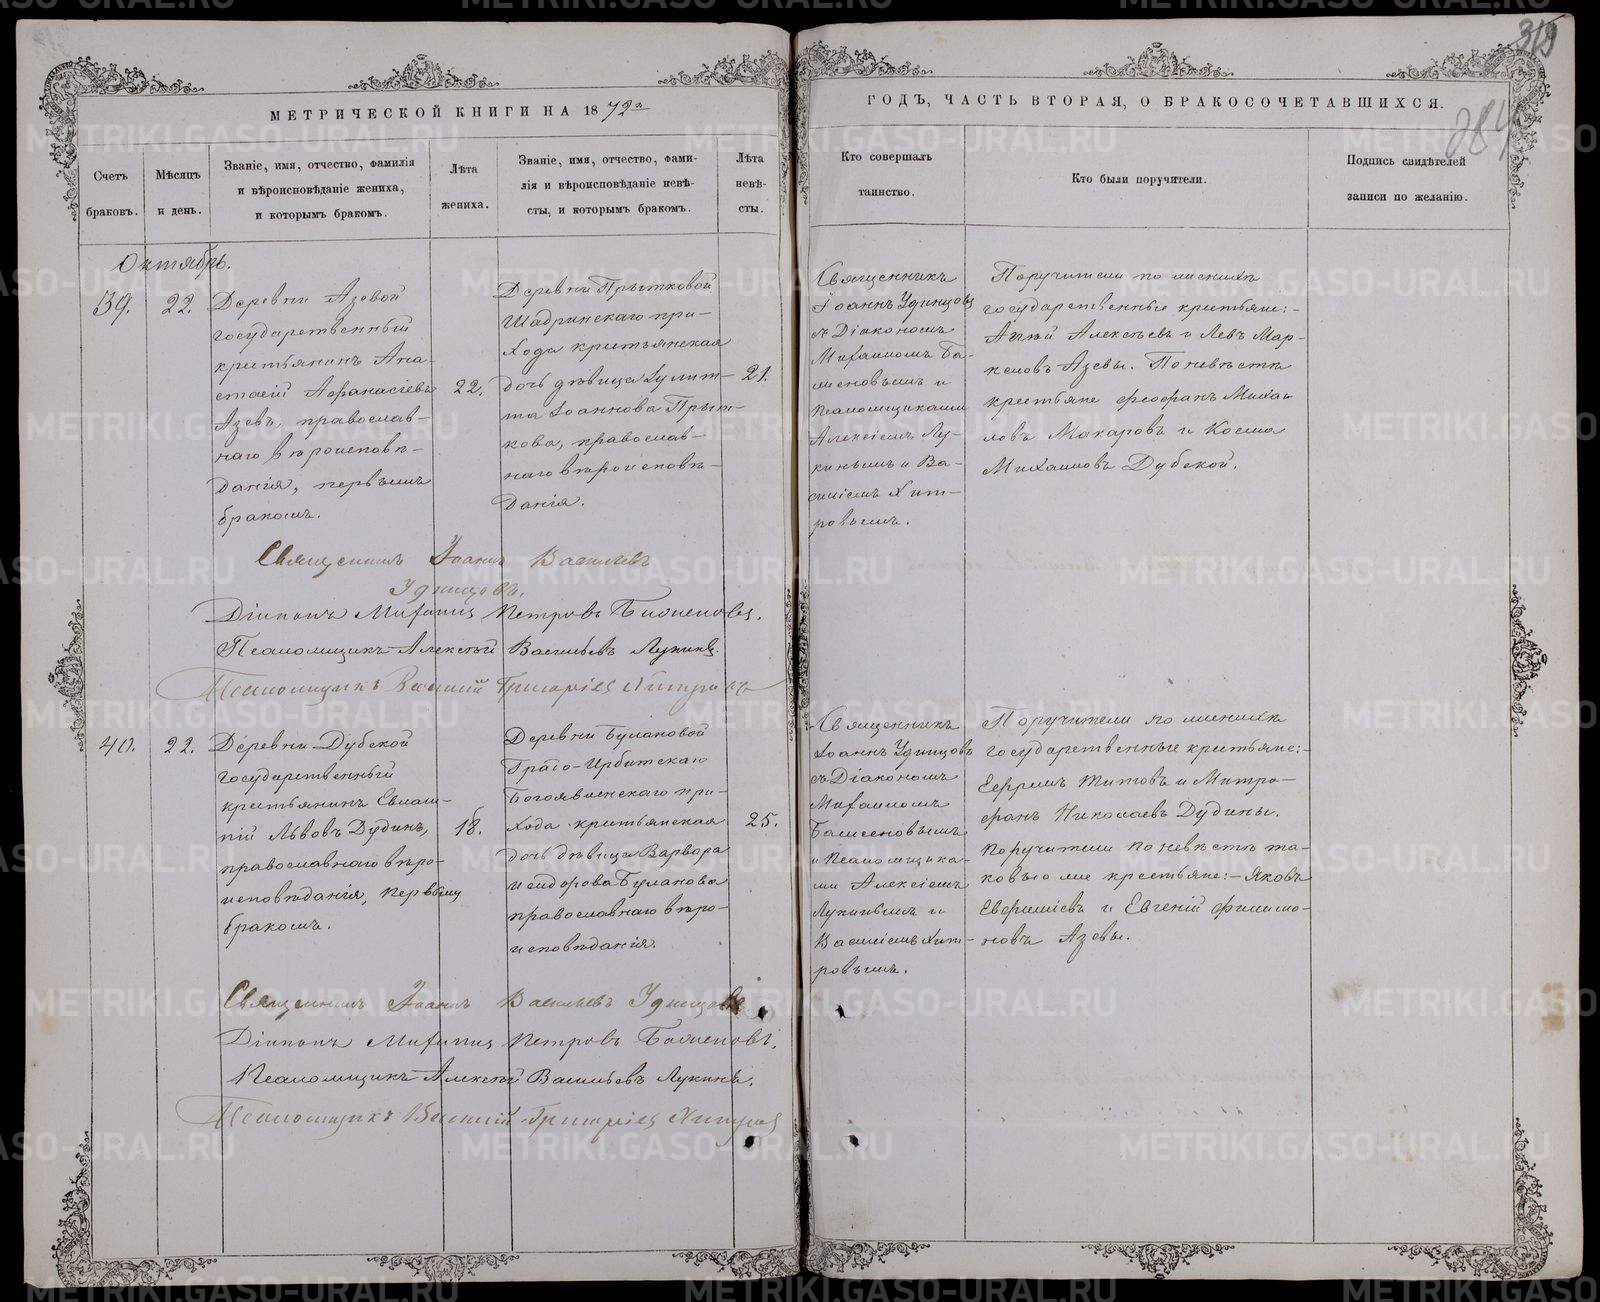 319
284
МЕТРИЧЕСКОЙ КНИГИ НА 1872й
ГОДЪ, ЧАСТЬ ВТОРАЯ, О БРАКОСОЧЕТАВШИХСЯ.
Счетъ
браковъ.
Мѣсяцъ
и день.
Званіе, имя, отчество, фамилія
и вѣроисповѣданіе жениха,
и которымъ бракомъ.
Лѣта
жениха.
Званіе, имя, отчество, фами-
лія и вѣроисповѣданіе невѣ-
сты, и которымъ бракомъ.
Лѣта
невѣ-
сты.
Кто совершалъ
таинство.
Кто были поручители.
Подпись свидѣтелей
записи по желанію.
Октябрь.
39.
22.
Деревни Азевой
государственный
крестьянинъ Ана-
стасій Афанасіевъ
Азевъ, православ-
наго вѣроисповѣ-
данія, первымъ
бракомъ.
22.
Деревни Прытковой
Шадринскаго при-
хода крестьянская
дочь дѣвица Іулит-
та Іоаннова Прыт-
кова, православ-
наго вѣроисповѣ-
данія.
21.
Священникъ
Іоаннъ Удинцовъ
съ Діакономъ
Михаиломъ Ба-
женовымъ и
псаломщиками
Алексіемъ Лу-
кинымъ и Ва-
силіемъ Хит-
ровымъ.
Поручители по женихѣ
государственные крестьяне:-
Алексѣевъ и Левъ Мар-
келовъ Азевы. По невѣстѣ
крестьяне Феофанъ Михаи-
ловъ Макаровъ и Косма
Михаиловъ Дубской.
Священникъ Іоаннъ Васильевъ
Удинцовъ.
Діаконъ Михаилъ Петровъ Баженовъ.
Псаломщикъ Алексѣй Васильевъ Лукинъ.
Псаломщикъ Василій Григоріевъ Хитровъ
40.
22.
Деревни Дубской
государственный
крестьянинъ Евлам-
пій Львовъ Дудинъ,
православнаго вѣро-
исповѣданія, первымъ
бракомъ.
18.
Деревни Булановой
Ирбитскаго
Богоявленскаго при-
хода крестьянская
дочь дѣвица Варвара
Исидорова Буланова
православнаго вѣро-
исповѣданія.
25.
Священникъ
Іоаннъ Удинцовъ
съ Діакономъ
Михаиломъ
Баженовымъ
и псаломщика-
ми Алексіемъ
Лукинымъ и
Василіемъ Хит-
ровымъ.
Поручители по женихѣ
государственные крестьяне:-
Ефремъ Титовъ и Митро-
фанъ Николаевъ Дудины.
Поручители по невѣстѣ та-
ковые же крестьяне:- Яковъ
Евфиміевъ и Евгеній Филимо-
новъ Азевы.
Священникъ Іоаннъ Васильевъ Удинцовъ
Діаконъ Михаилъ Петровъ Баженовъ.
Псаломщикъ Алексѣй Васильевъ Лукинъ.
Псаломщикъ Василій Григоріевъ Хитровъ
METRIKI.GASO-URAL.RU